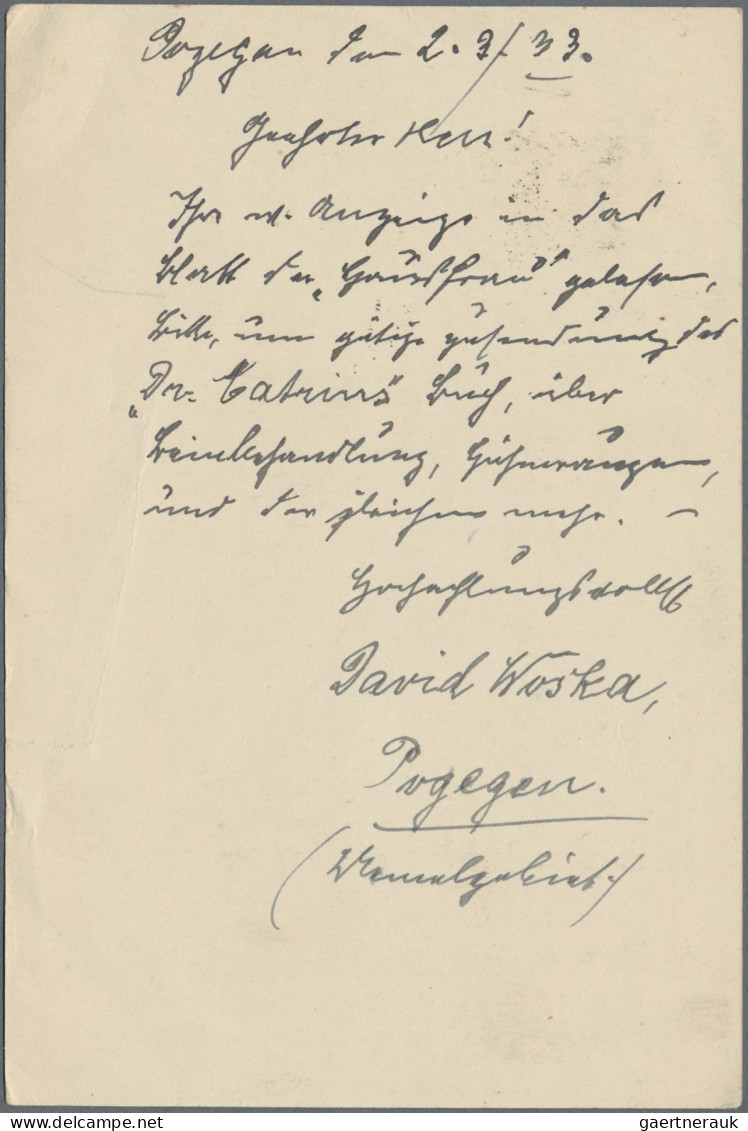 Pogegen den 2.3/33.
Geehrter Herr!
Ihre w. Anzeige in das
Blatt der „Hausfrau" gelesen,
bitte, um gütige zusendung des
„Dr. Catrins" Buch, über
Beinbehandlung, Hühneraugen,
und der gleichen mehr. –
Hochachtungsvoll
David Woska,
Pogegen.
(Memelgebiet.)
gaertnerauk